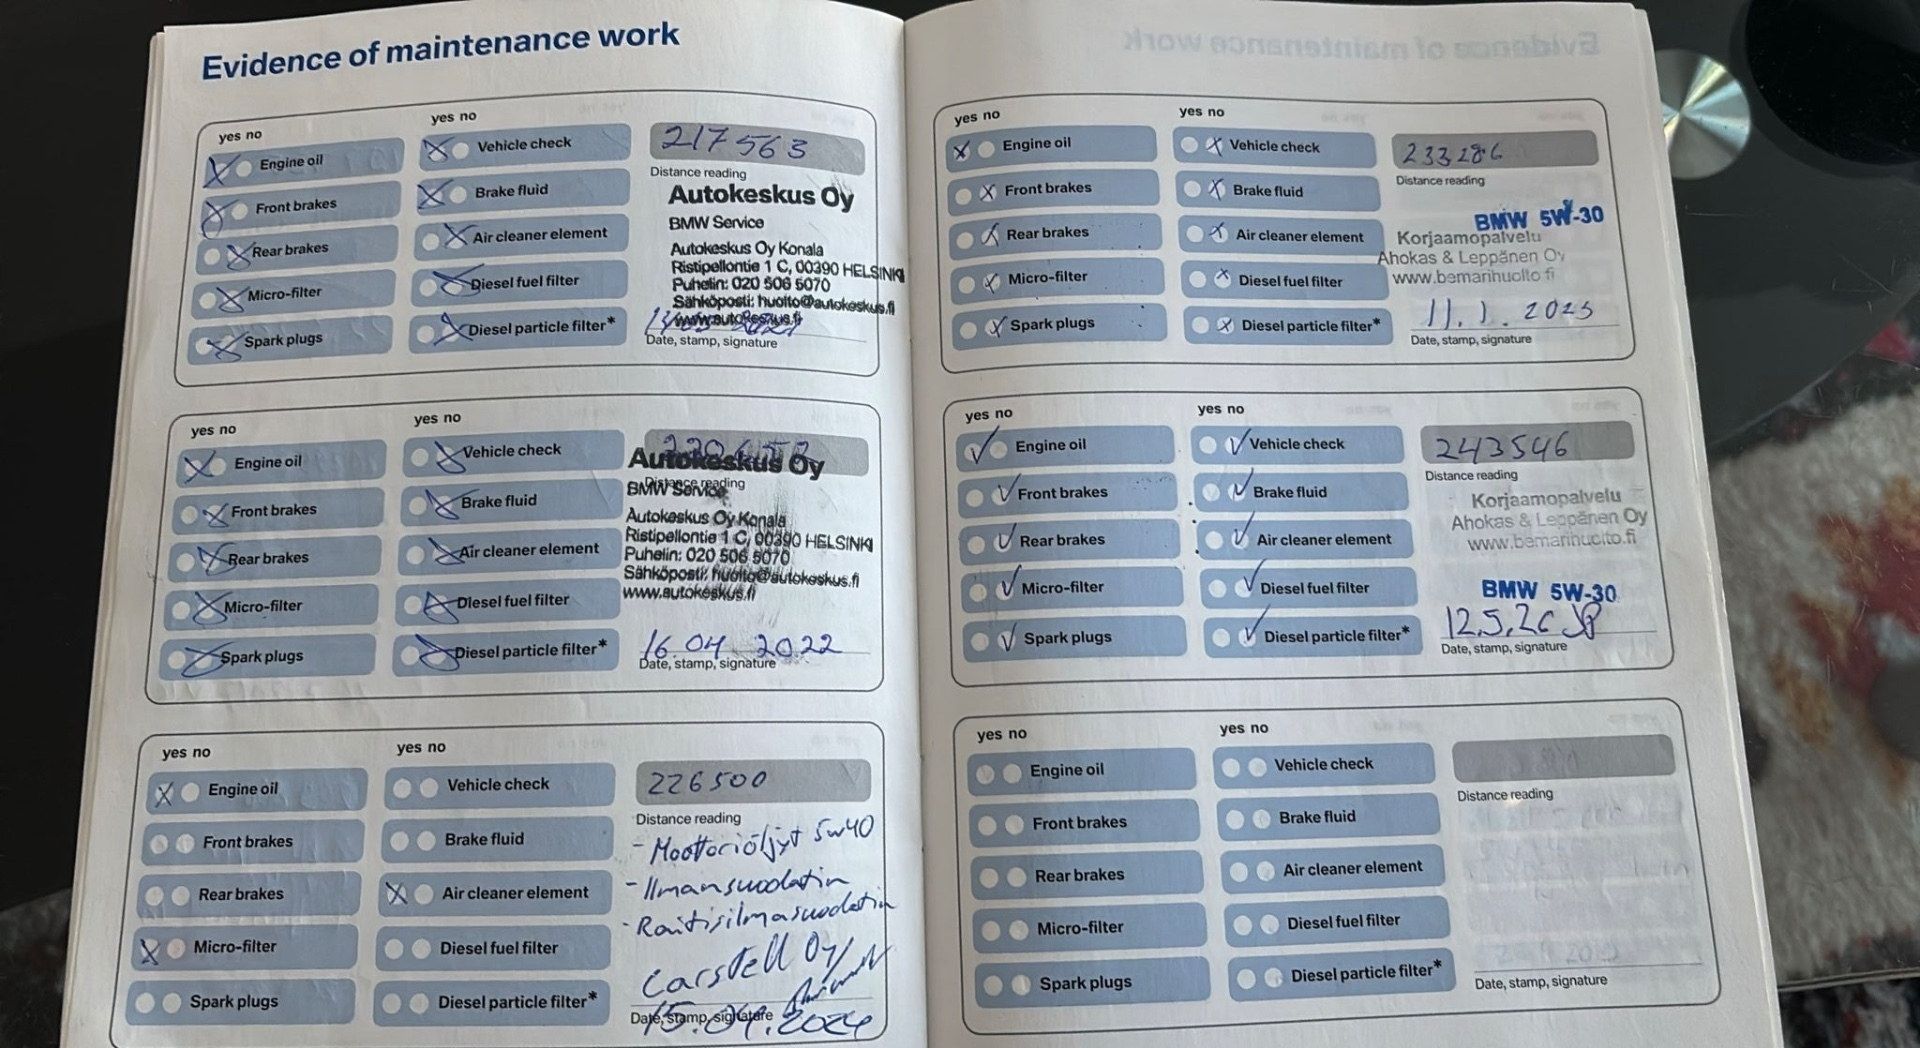 Evidence of maintenance work
yes no
Engine oil
Front brakes
Rear brakes
Micro-filter
Spark plugs
yes no
Vehicle check
Brake fluid
Air cleaner element
Diesel fuel filter
Diesel particle filter*
217563
Distance reading
Autokeskus Oy
BMW Service
Autokeskus Oy Konala
Ristipellontie 1 C, 00390 HELSINKI
Puhelin: 020 506 5070
Sähköposti: huolto@autokeskus.fi
www.autokeskus.fi
Date, stamp, signature
yes no
Engine oil
Front brakes
Rear brakes
Micro-filter
Spark plugs
yes no
Vehicle check
Brake fluid
Air cleaner element
Diesel fuel filter
Diesel particle filter*
Autokeskus Oy
Distance reading
BMW Service
Autokeskus Oy Konala
Ristipellontie 1 C, 00390 HELSINKI
Puhelin: 020 506 5070
Sähköposti: huolto@autokeskus.fi
www.autokeskus.fi
16.04 2022
Date, stamp, signature
yes no
Engine oil
Front brakes
Rear brakes
Micro-filter
Spark plugs
yes no
Vehicle check
Brake fluid
Air cleaner element
Diesel fuel filter
Diesel particle filter*
226500
Distance reading
- Moottoriöljyt 5w40
- Ilmansuodatin
- Raitisilmasuodatin
Carstell Oy
Date, stamp, signature
15.04.2024
yes no
Engine oil
Front brakes
Rear brakes
Micro-filter
Spark plugs
yes no
Vehicle check
Brake fluid
Air cleaner element
Diesel fuel filter
Diesel particle filter*
233286
Distance reading
BMW 5W-30
Korjaamopalvelu
Ahokas & Leppänen Oy
www.bemarihuolto.fi
11.1.2025
Date, stamp, signature
yes no
Engine oil
Front brakes
Rear brakes
Micro-filter
Spark plugs
yes no
Vehicle check
Brake fluid
Air cleaner element
Diesel fuel filter
Diesel particle filter*
243546
Distance reading
Korjaamopalvelu
Ahokas & Leppänen Oy
www.bemarihuolto.fi
BMW 5W-30
12.5.26
Date, stamp, signature
yes no
Engine oil
Front brakes
Rear brakes
Micro-filter
Spark plugs
yes no
Vehicle check
Brake fluid
Air cleaner element
Diesel fuel filter
Diesel particle filter*
Distance reading
Date, stamp, signature